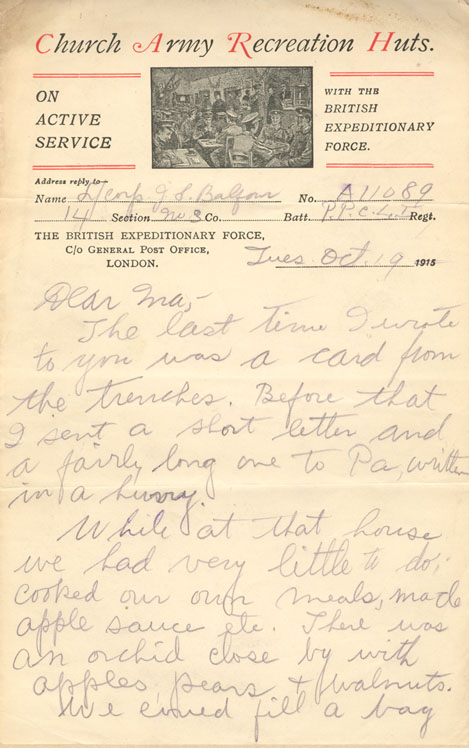 Church Army Recreation Huts.
ON
ACTIVE
SERVICE
WITH THE
BRITISH
EXPEDITIONARY
FORCE.
Address reply to—
Name L/Corp J S Balfour No. A11089
14 Section No 3 Co. Batt. P.P.C.L.I Regt.
THE BRITISH EXPEDITIONARY FORCE,
C/o GENERAL POST OFFICE,
LONDON.
Tues. Oct. 19 1915
Dear Ma,-
The last time I wrote
to you was a card from
the trenches. Before that
I sent a short letter and
a fairly long one to Pa, written
in a hurry.
While at that house
we had very little to do;
cooked our own meals, made
apple sauce etc. There was
an orchid close by with
apples, pears & walnuts.
We could fill a bag